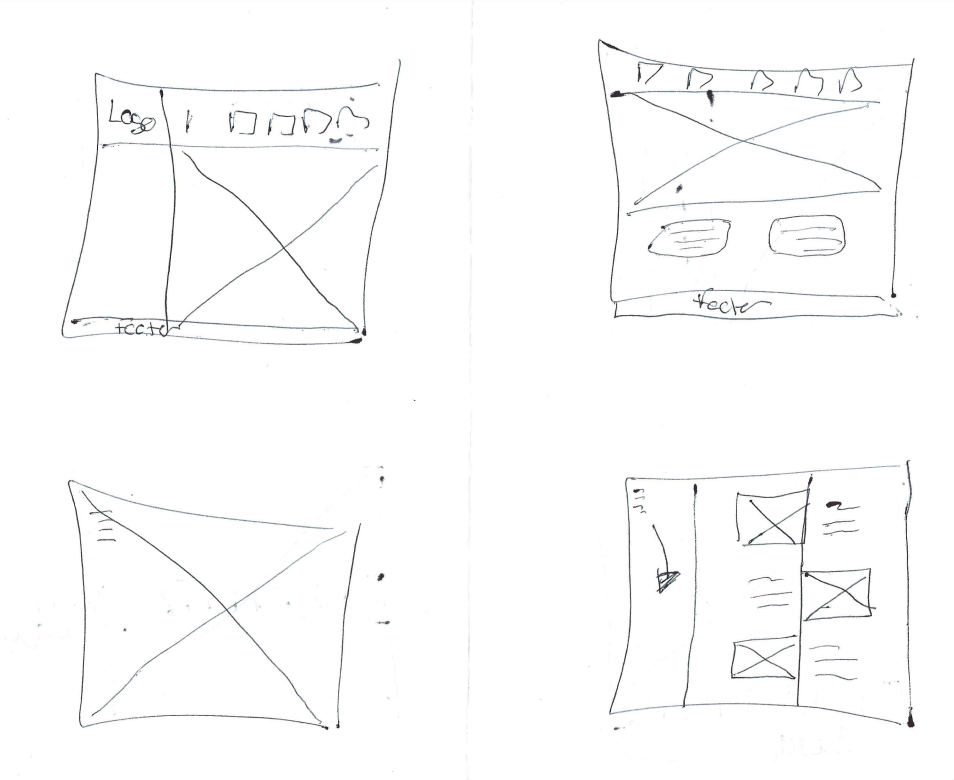 Logo
footer
footer